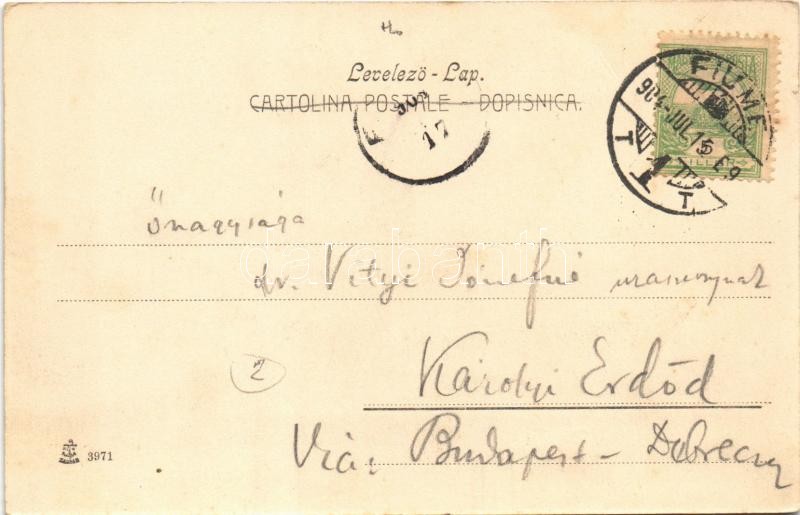 Levelező - Lap.
CARTOLINA POSTALE – DOPISNICA.
FIUME
904 JUL 15 E9
T T
17
Őnagysága
dr. Vityi Józsefné
Károlyi Erdőd
Via: Budapest – Debreczen
2
3971
darabanth